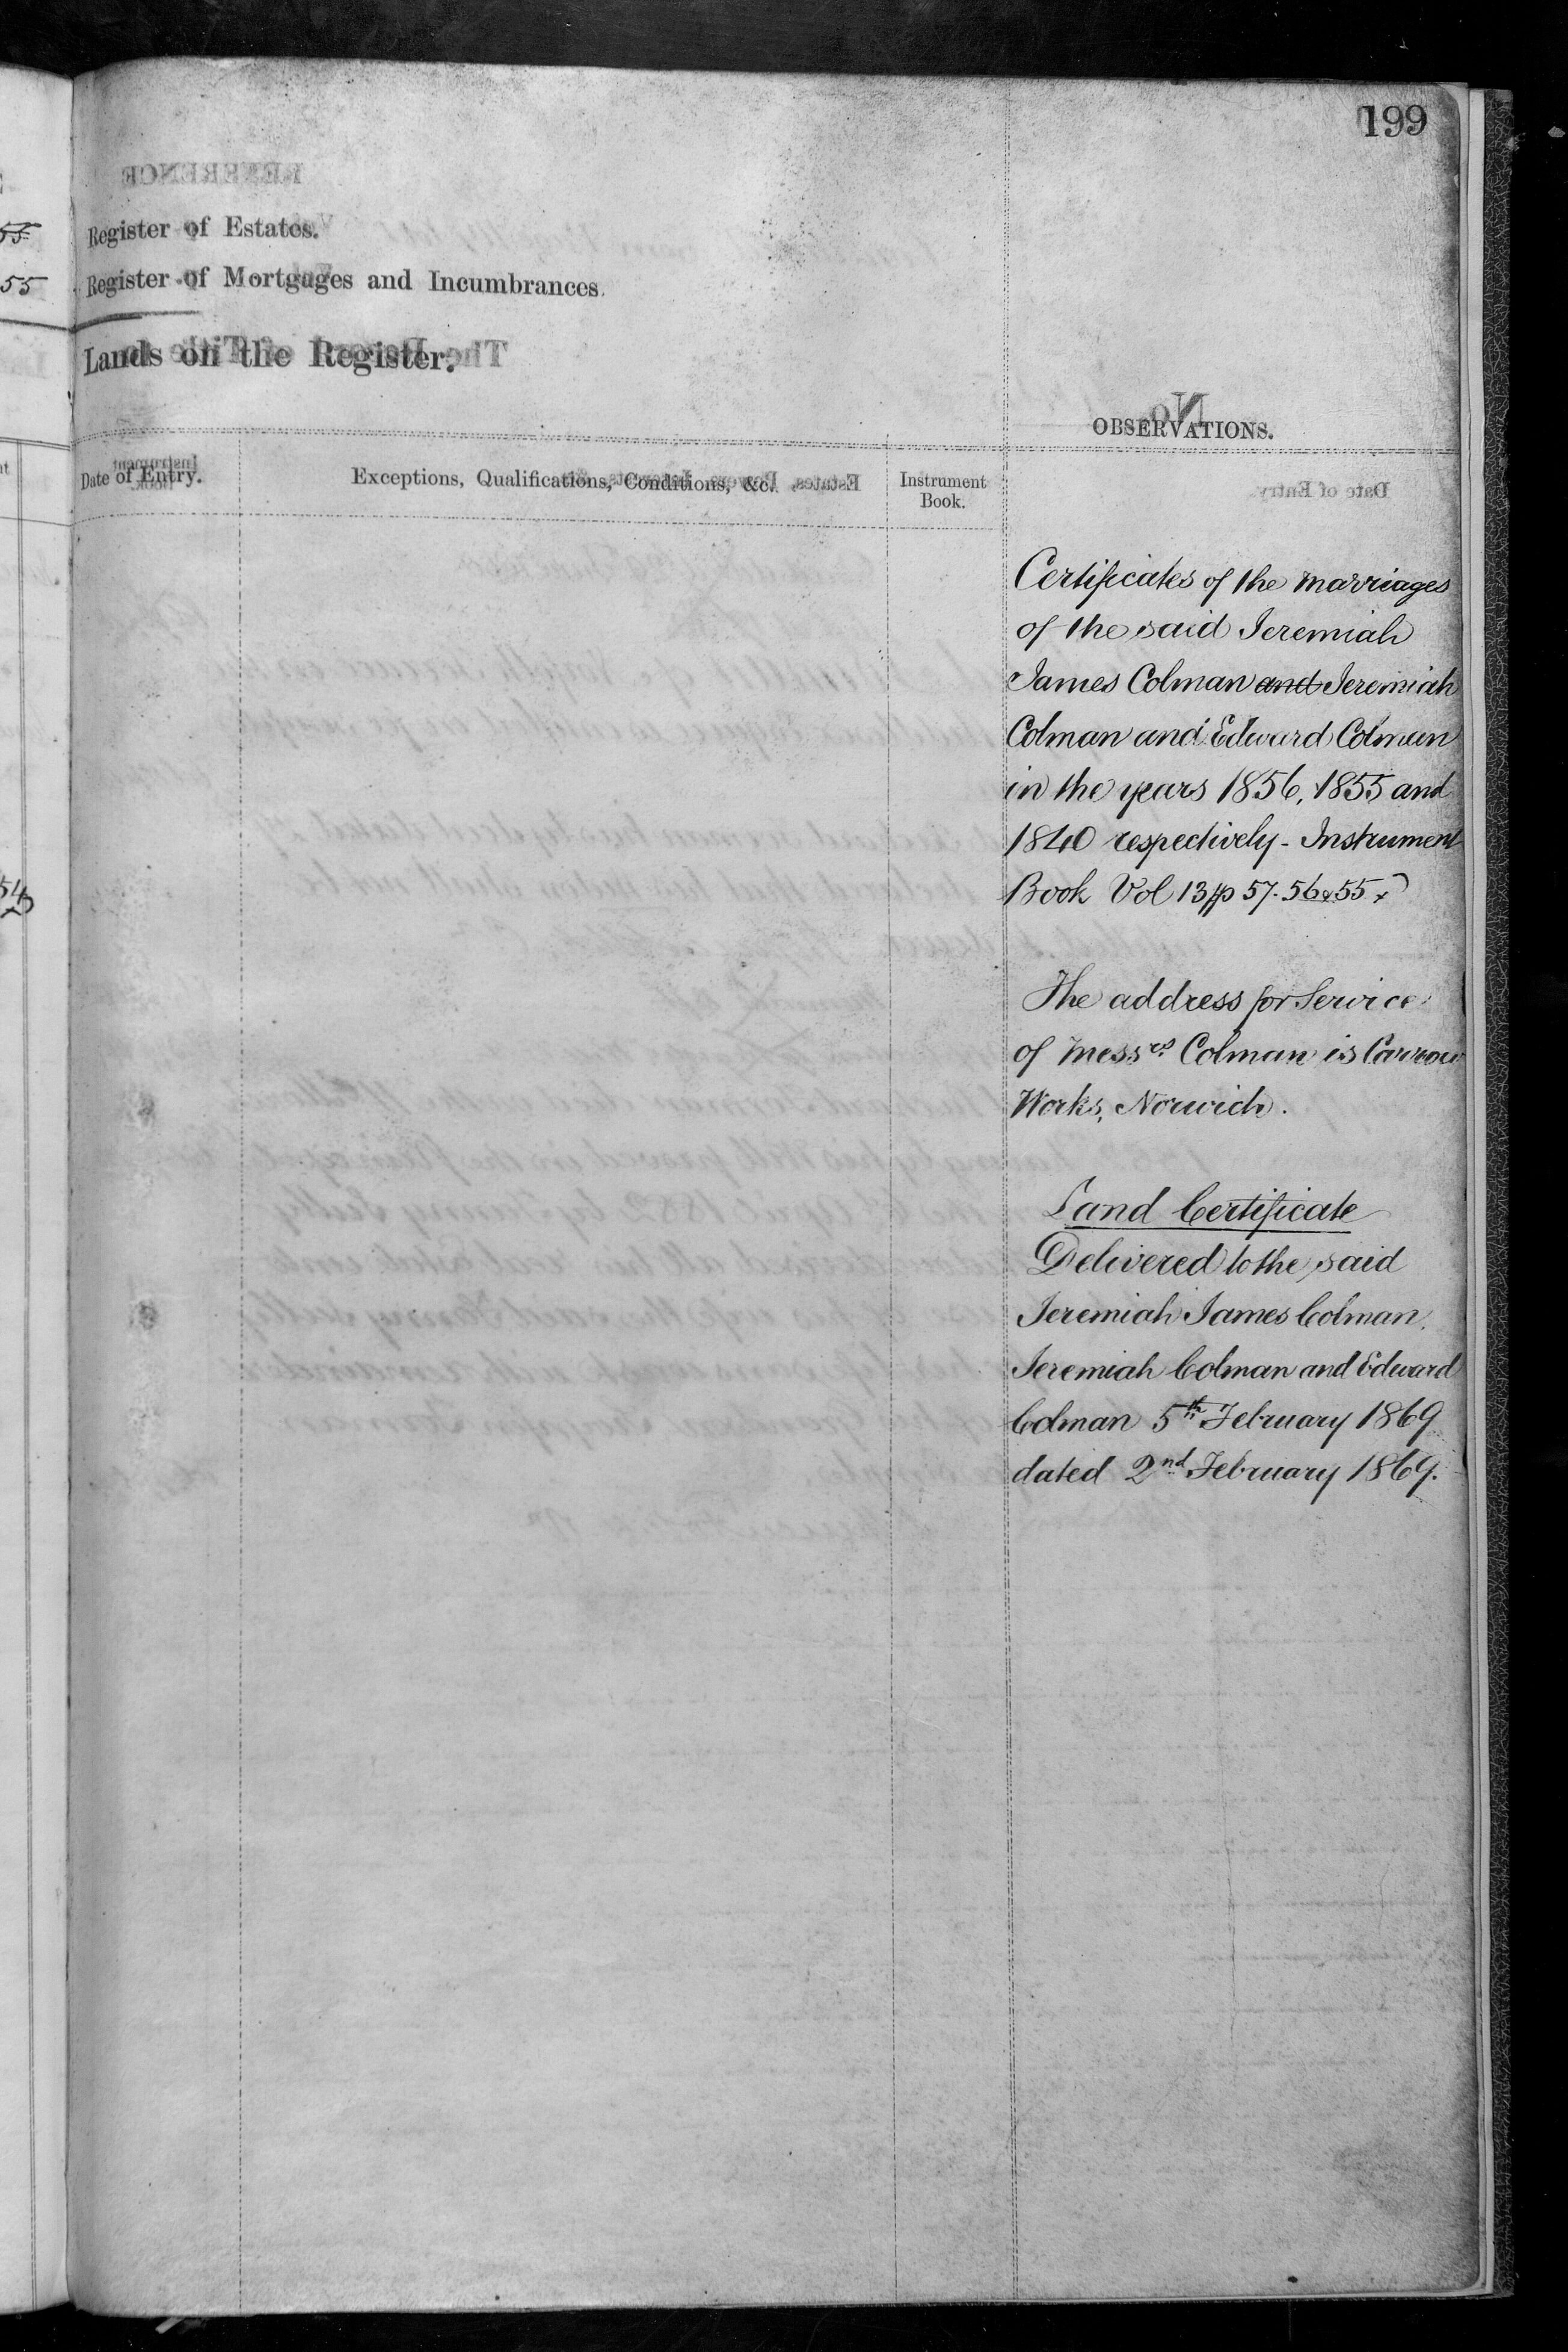 199
55
55
Register of Estates.
Register of Mortgages and Incumbrances.
Lands on the Register.
OBSERVATIONS.
Date of Entry.
Exceptions, Qualifications, Conditions, &c.
Instrument
Book.
Certificates of the marriages
of the said Jeremiah
James Colman and Jeremiah
Colman and Edward Colman
in the years 1856, 1855 and
1840 respectively - Instrument
Book Vol 13 pp 57. 56 & 55
The address for Service
of Messrs Colman is Carrow
Works, Norwich.
Land Certificate
Delivered to the said
Jeremiah James Colman,
Jeremiah Colman and Edward
Colman 5th February 1869
dated 2nd February 1869.